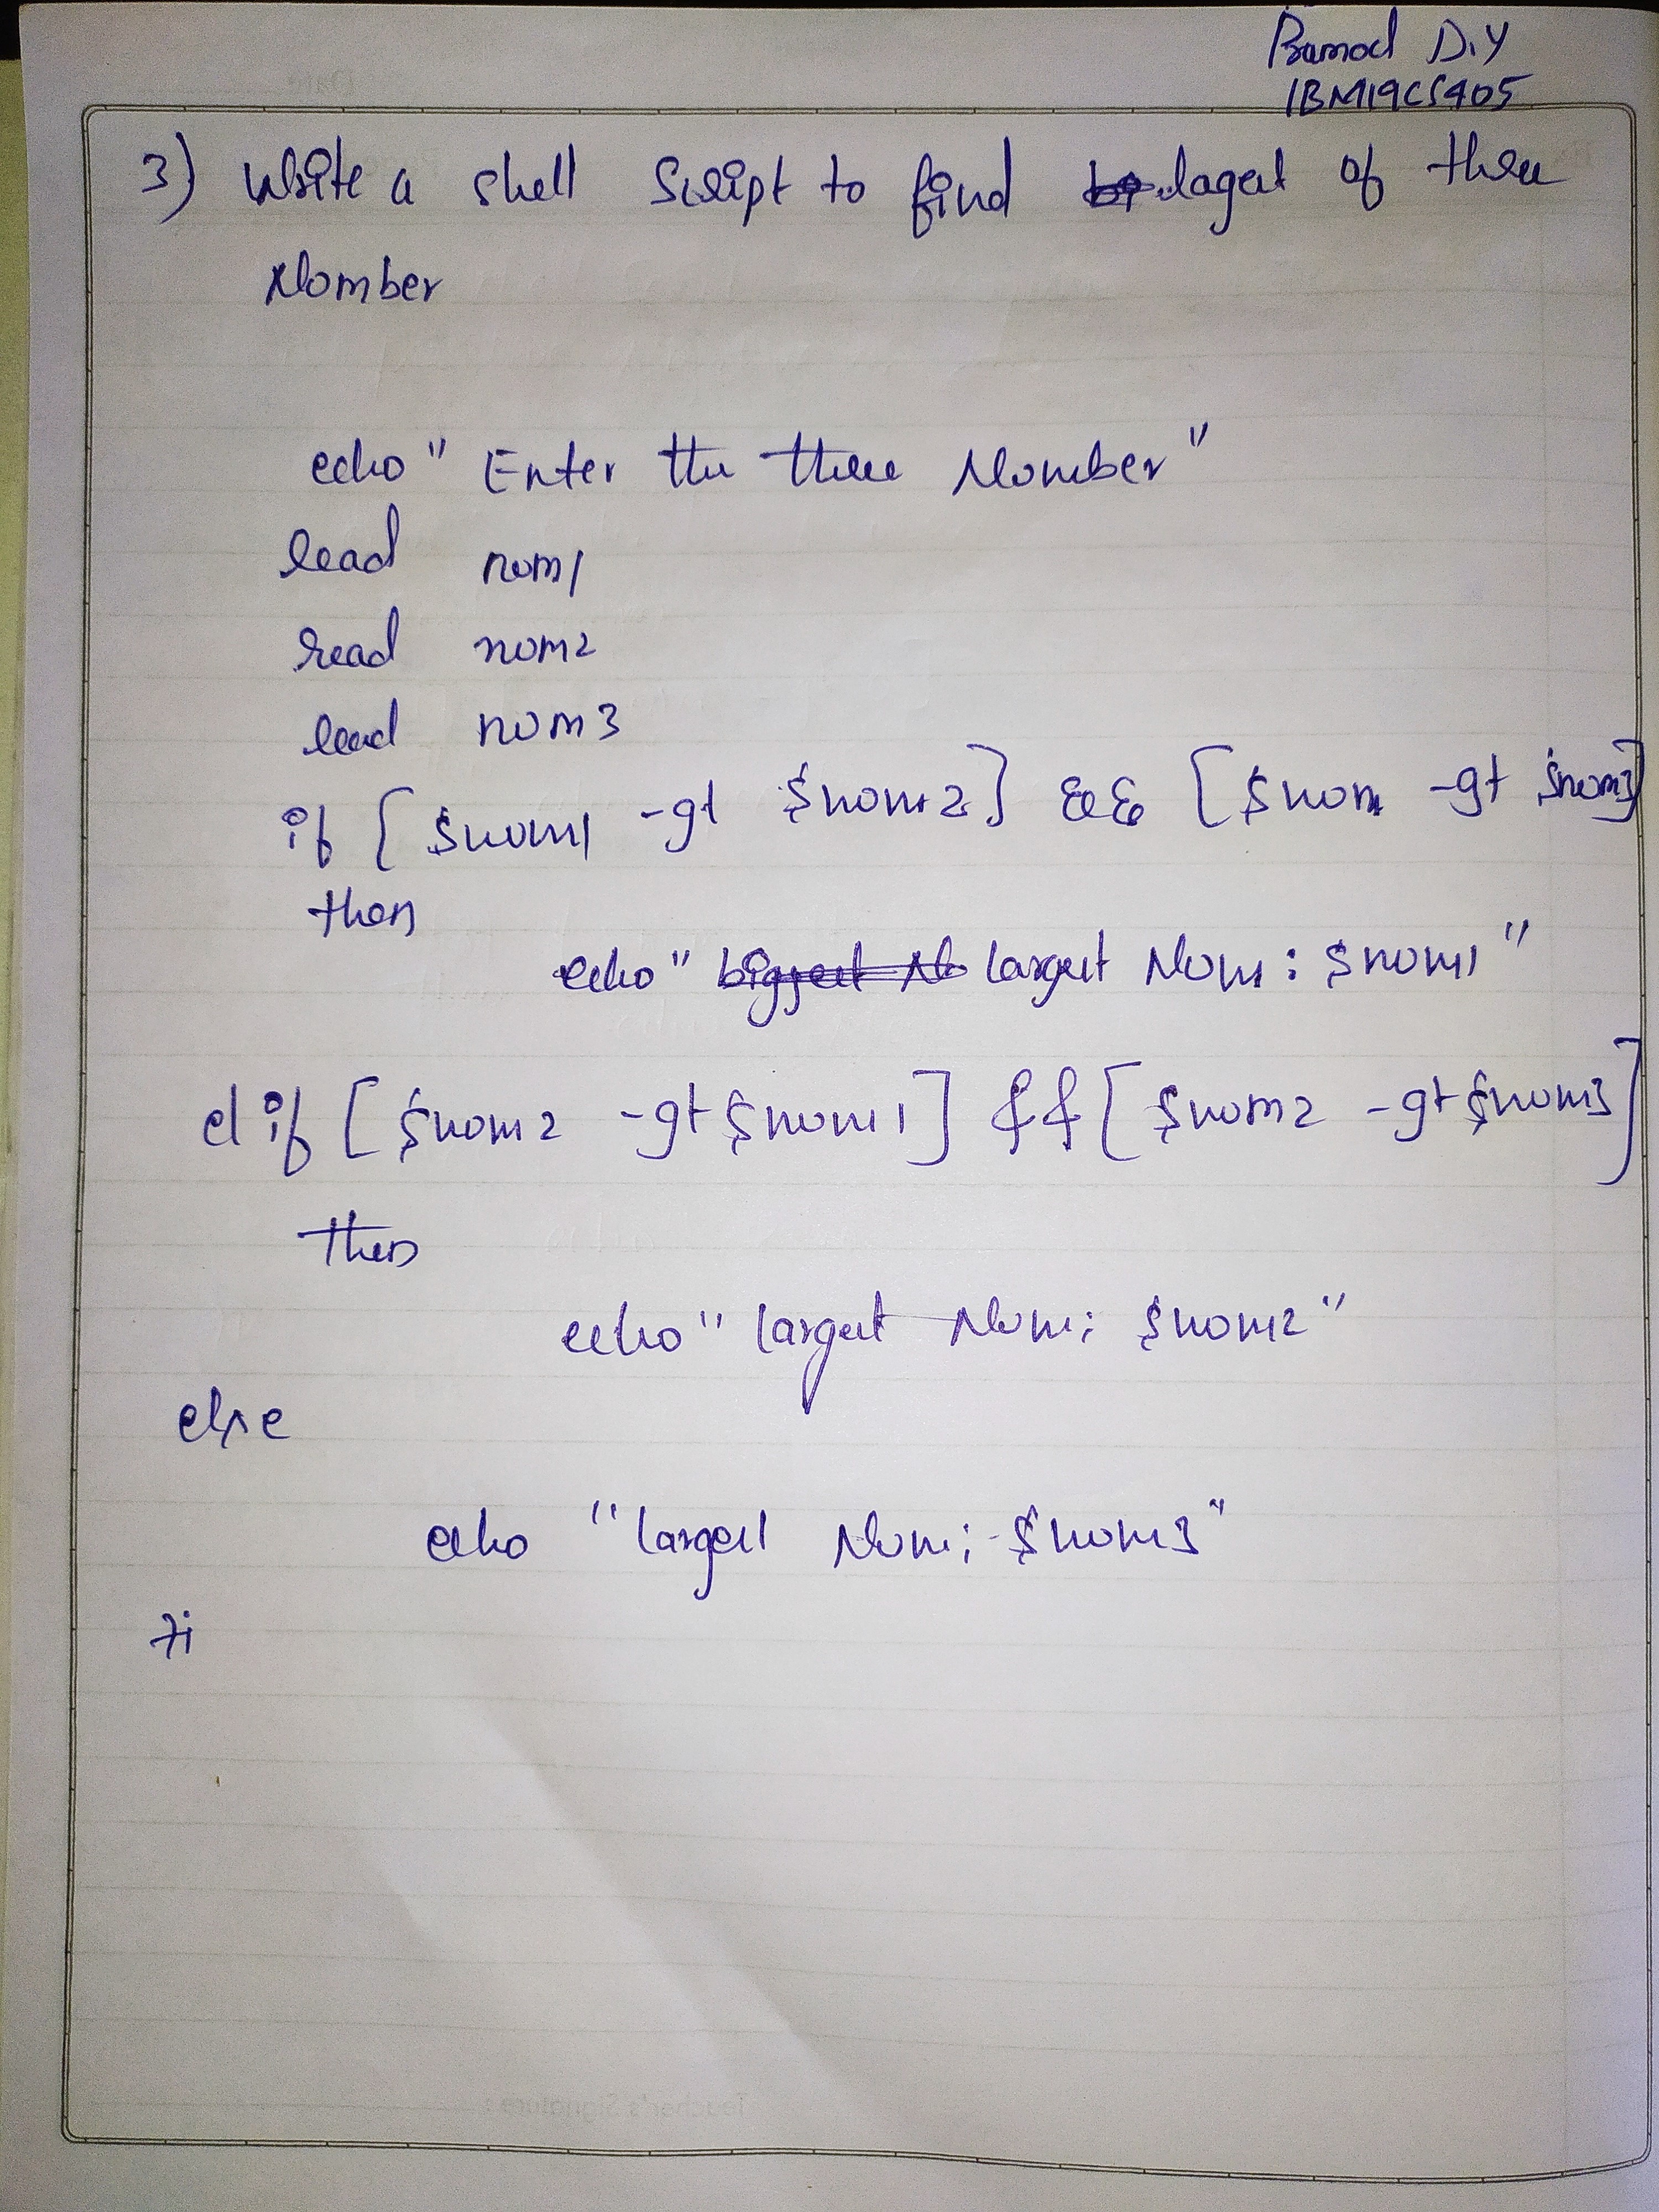 Pramod D.Y
1BM19CS405
3) Write a shell Script to find largest of three
Number
echo " Enter the three Number "
read num1
read num2
read num3
if [ $num1 -gt $num2 ] && [ $num1 -gt $num3 ]
then
echo " largest Num : $num1 "
elif [ $num2 -gt $num1 ] && [ $num2 -gt $num3 ]
then
echo " largest Num : $num2 "
else
echo " largest Num : $num3 "
fi